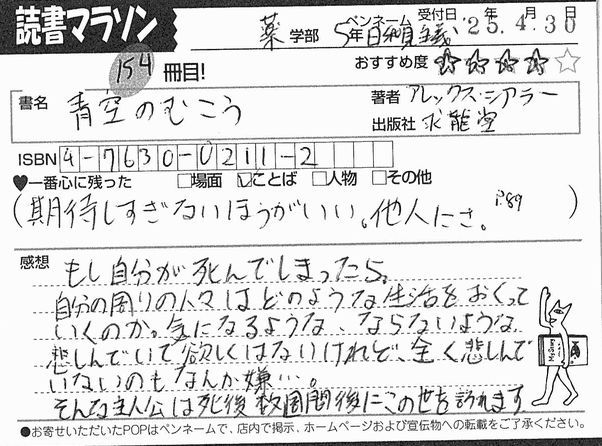 読書マラソン
薬 学部 5年 ペンネーム 日和見主義 受付日 '25年4.月30日
154 冊目! おすすめ度 ★★★★☆
書名 青空のむこう
著者 アレックス・シアラー
出版社 求龍堂
ISBN 4-7630-0211-2
♥一番心に残った □場面 ☑ことば □人物 □その他
(期待しすぎないほうがいい。他人にさ。P.89)
感想 もし自分が死んでしまったら、
自分の周りの人々はどのような生活をおくって
いくのか。気になるような、ならないような。
悲しんでいて欲しくはないけれど、全く悲しんで
いないのもなんか嫌…。
そんな主人公は死後数週間後にこの世を訪れます。
●お寄せいただいたPOPはペンネームで、店内で掲示、ホームページおよび宣伝物への転載をご了承ください。